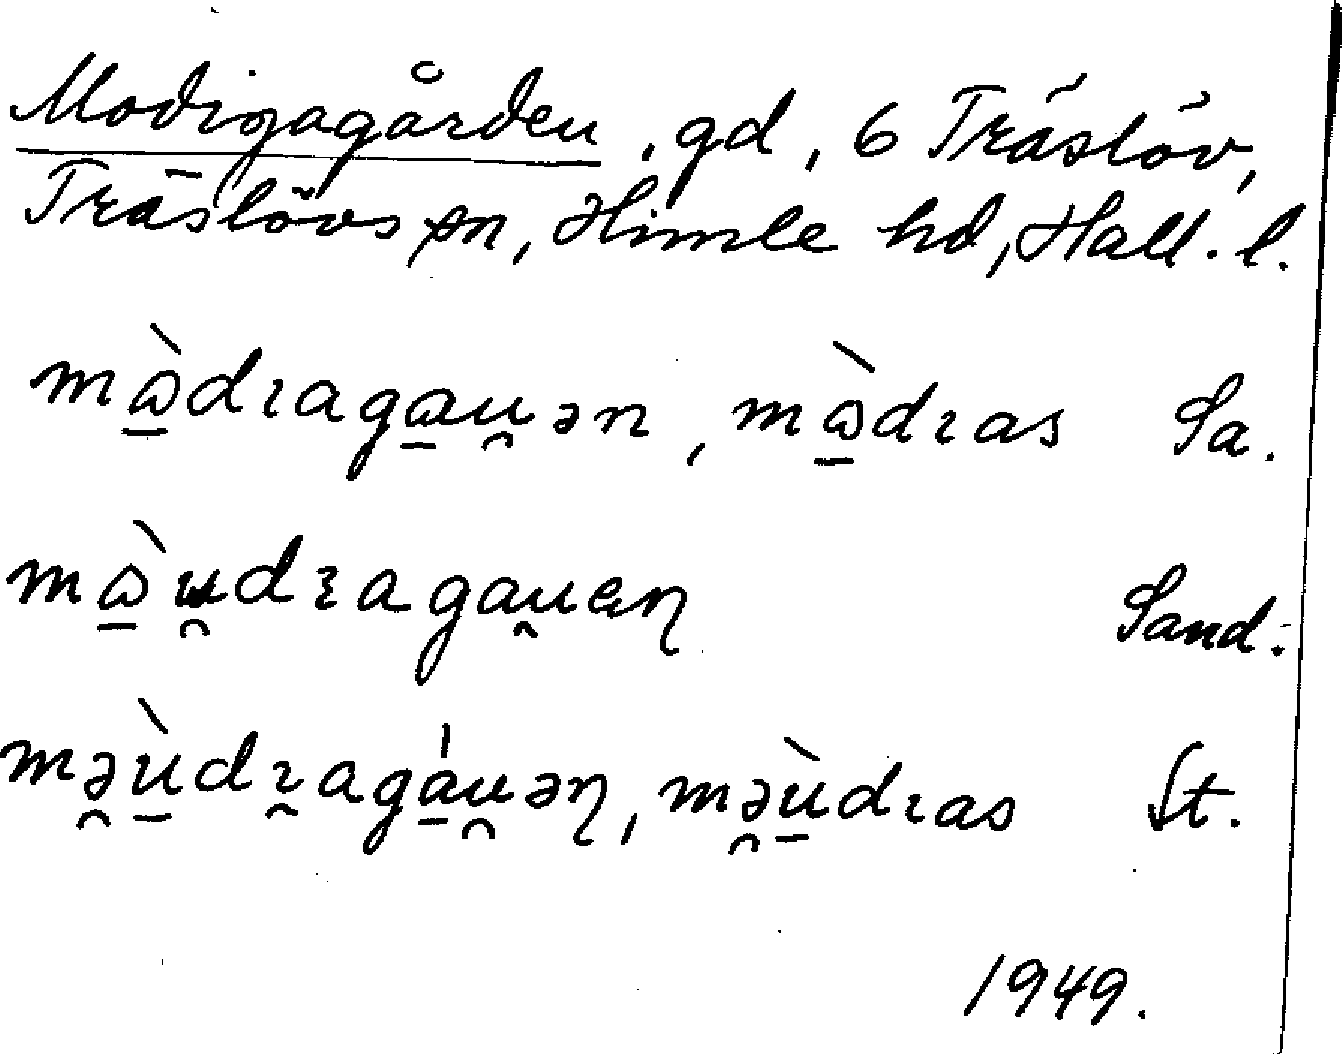 Modigagården, gd, 6 Träslöv,
Träslövs sn, Himle hd, Hall. l.
mɷ̠̀dɩaga̠u̯ən, mɷ̠̀dɩas Sa.
mɷ̠̀u̯dɩagau̯eƞ Sand.
mə̯ù̠dɩ̯agá̠u̯əƞ, mə̯ù̠dɩas St.
1949.